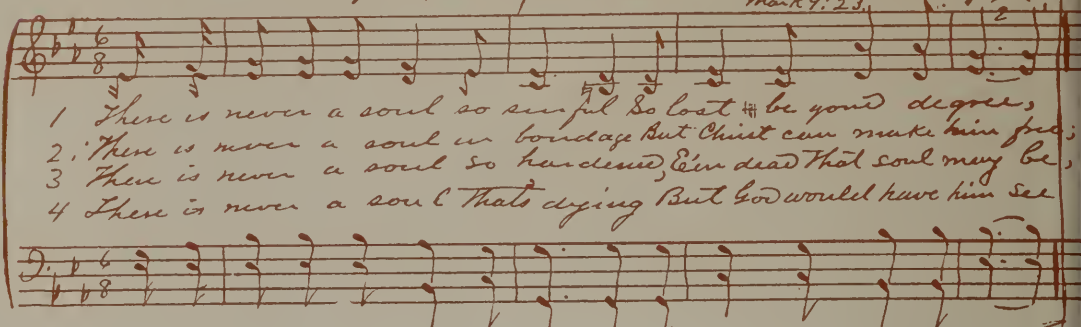 Mark 9:23.
6 8
2
1 There is never a soul so sinful So lost be yond degree,
2. There is never a soul in bondage But Christ can make him free;
3 There is never a soul so hardened, E'en dead That soul may be,
4 There is never a soul That's dying But God would have him see
6 8